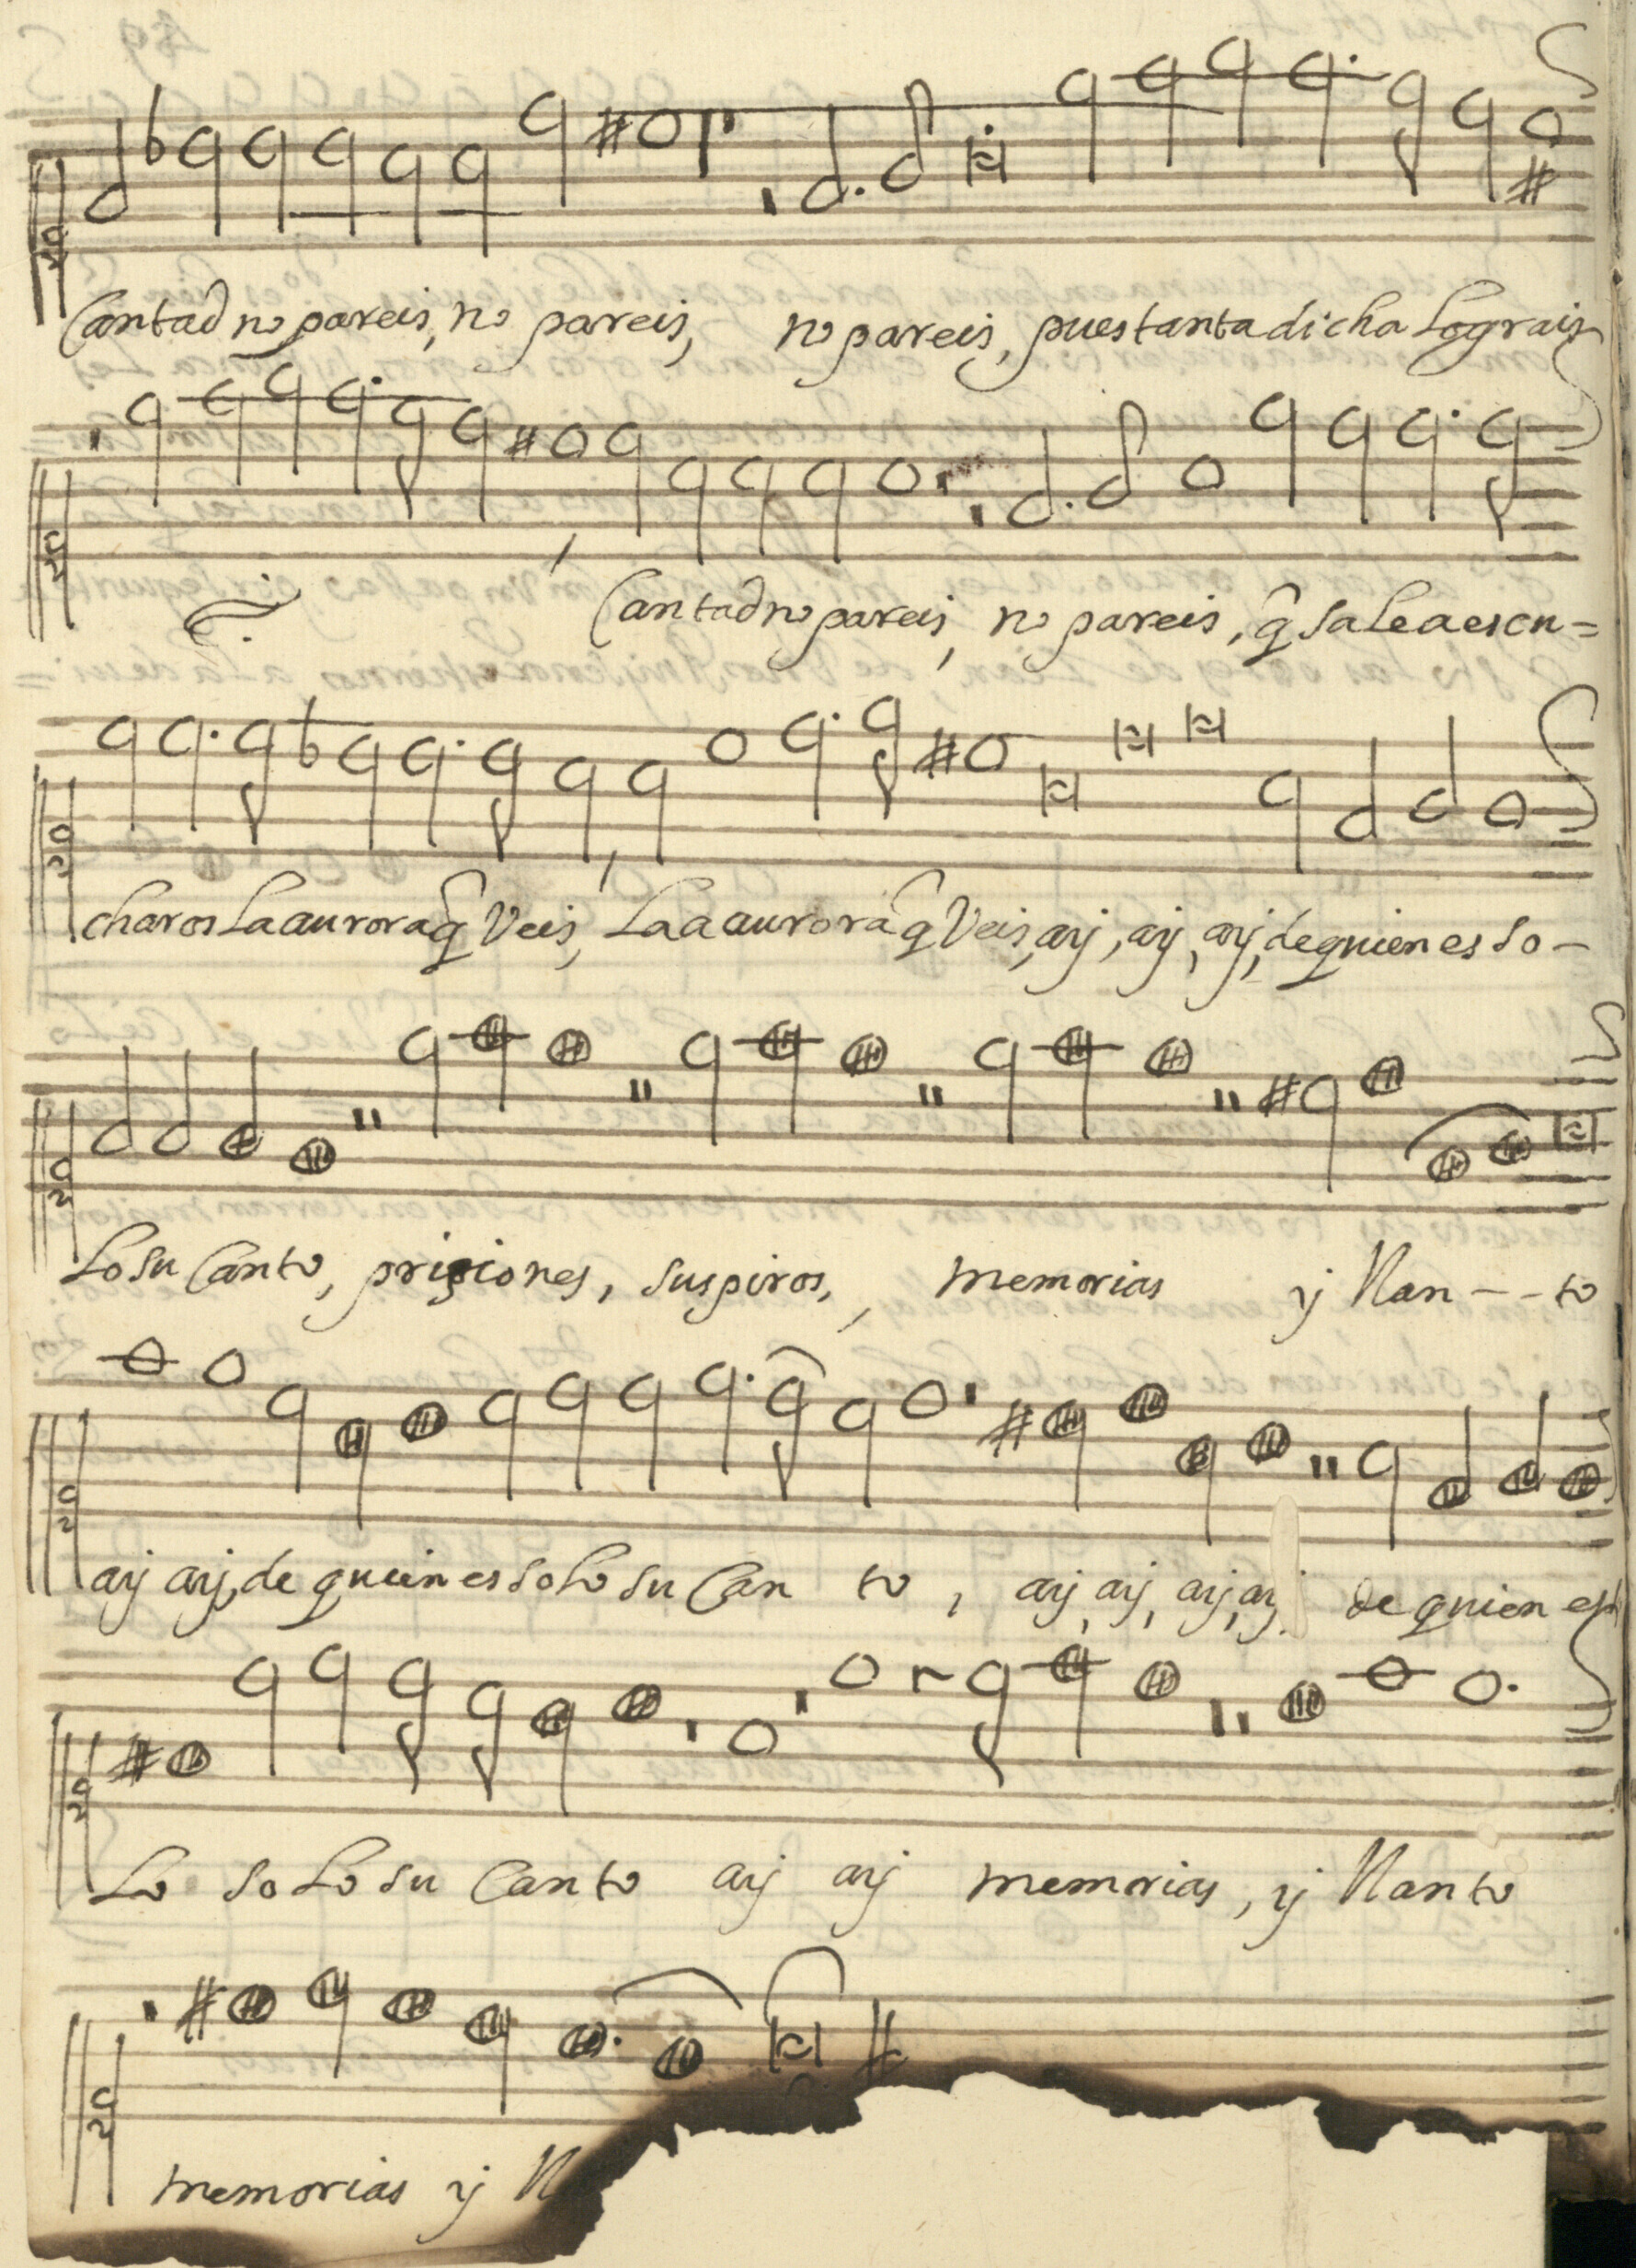 Cantad no pareis, no pareis, no pareis, pues tanta dicha Lograis
Cantad no pareis, no pareis, q̂ sale a escu=
charos La aurora q̂ Veis, La a aurora q̂ Veis, aij, aij, aij, de quien es so-
Lo su Canto, prisiones, suspiros, memorias ij llan---to
aij aij, de quien es solo su Can to, aij, aij, aij, aij de quien es
Lo so Lo su Canto aij aij memorias, ij llanto
memorias ij ll